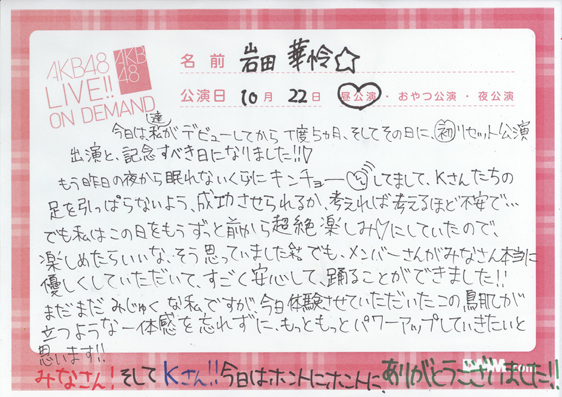 AKB48
LIVE!!
ON DEMAND
AKB
48
名前 岩田 華怜☆
公演日 10月 22日 昼公演・おやつ公演・夜公演
今日は、私達がデビューしてから丁度5ヵ月、そしてその日に、初リセット公演
出演と、記念すべき日になりました!!♡
もう昨日の夜から眠れないくらいにキンチョーしてまして、Kさんたちの
足を引っぱらないよう、成功させられるか、考えれば考えるほど不安で…
でも私はこの日をもうずっと前から超絶楽しみ♡にしていたので、
楽しめたらいいな、そう思っていました。でも、メンバーさんがみなさん本当に
優しくしていただいて、すごく安心して、踊ることができました!!
まだまだ みじゅくな私ですが 今日体験させていただいたこの鳥肌が
立つような一体感を忘れずに、もっともっとパワーアップしていきたいと
思います!!
みなさん!そしてKさん!!今日はホントにホントに、ありがとうございました!!